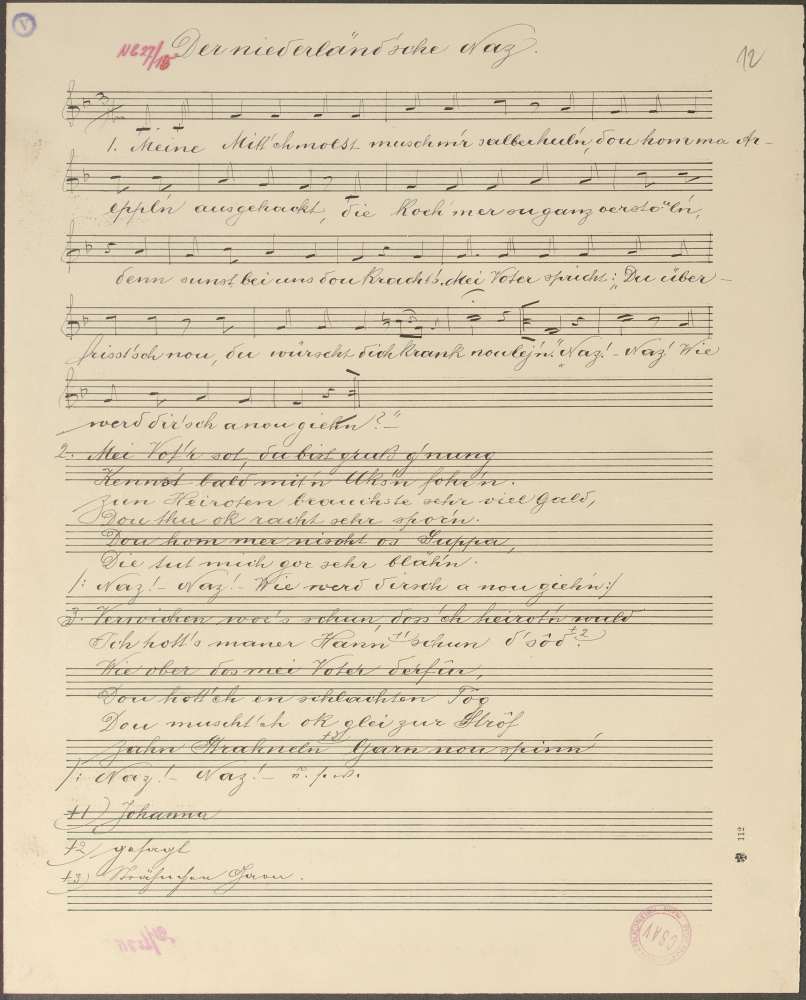 V
NG 27/18
Der niederländ'sche Naz.
12
1. Meine Milk'chmolst muschm'r salberhul'n, dou hom ma Ar-
eppl'n ausgehackt, die Koch'mer su ganz versto"l'n,
denn sunst bei uns dou kracht's. Mei Voter spricht: "Du über-
frisst'sch nou, du würscht dich krank nou lej'n." "Naz! - Naz! Wie
werd dir'sch a nou giehn?"-
2. Mei Vot'r sot, du bist gruß g'nung
Kenn'st bald mit'n Uks'n fohr'n.
Zun Heiroten brauchste sehr viel Gald,
Dou thu ok racht sehr spor'n.
Dou hom mer nischt os Suppa,
Die tut mich gor sehr bläh'n.
/: Naz! - Naz! - Wie werd dirsch a nou gieh'n :/
3. Verwichen wor's schun, doss'ch heirot'n wuld
Ich hott's maner Hann' +1 schun g'sôd +2.
Wie ober dos mei Voter derfûr,
Dou hott'ch en schlachten Tog
Dou muscht'ch ok glei zur Strôf
Zahn Strahneln +3 Garn nou spinn'
/: Naz! - Naz! - u. s. w.
+1) Johanna
+2) gesagt
+3) Strähnchen Garn.
112
ČSAV